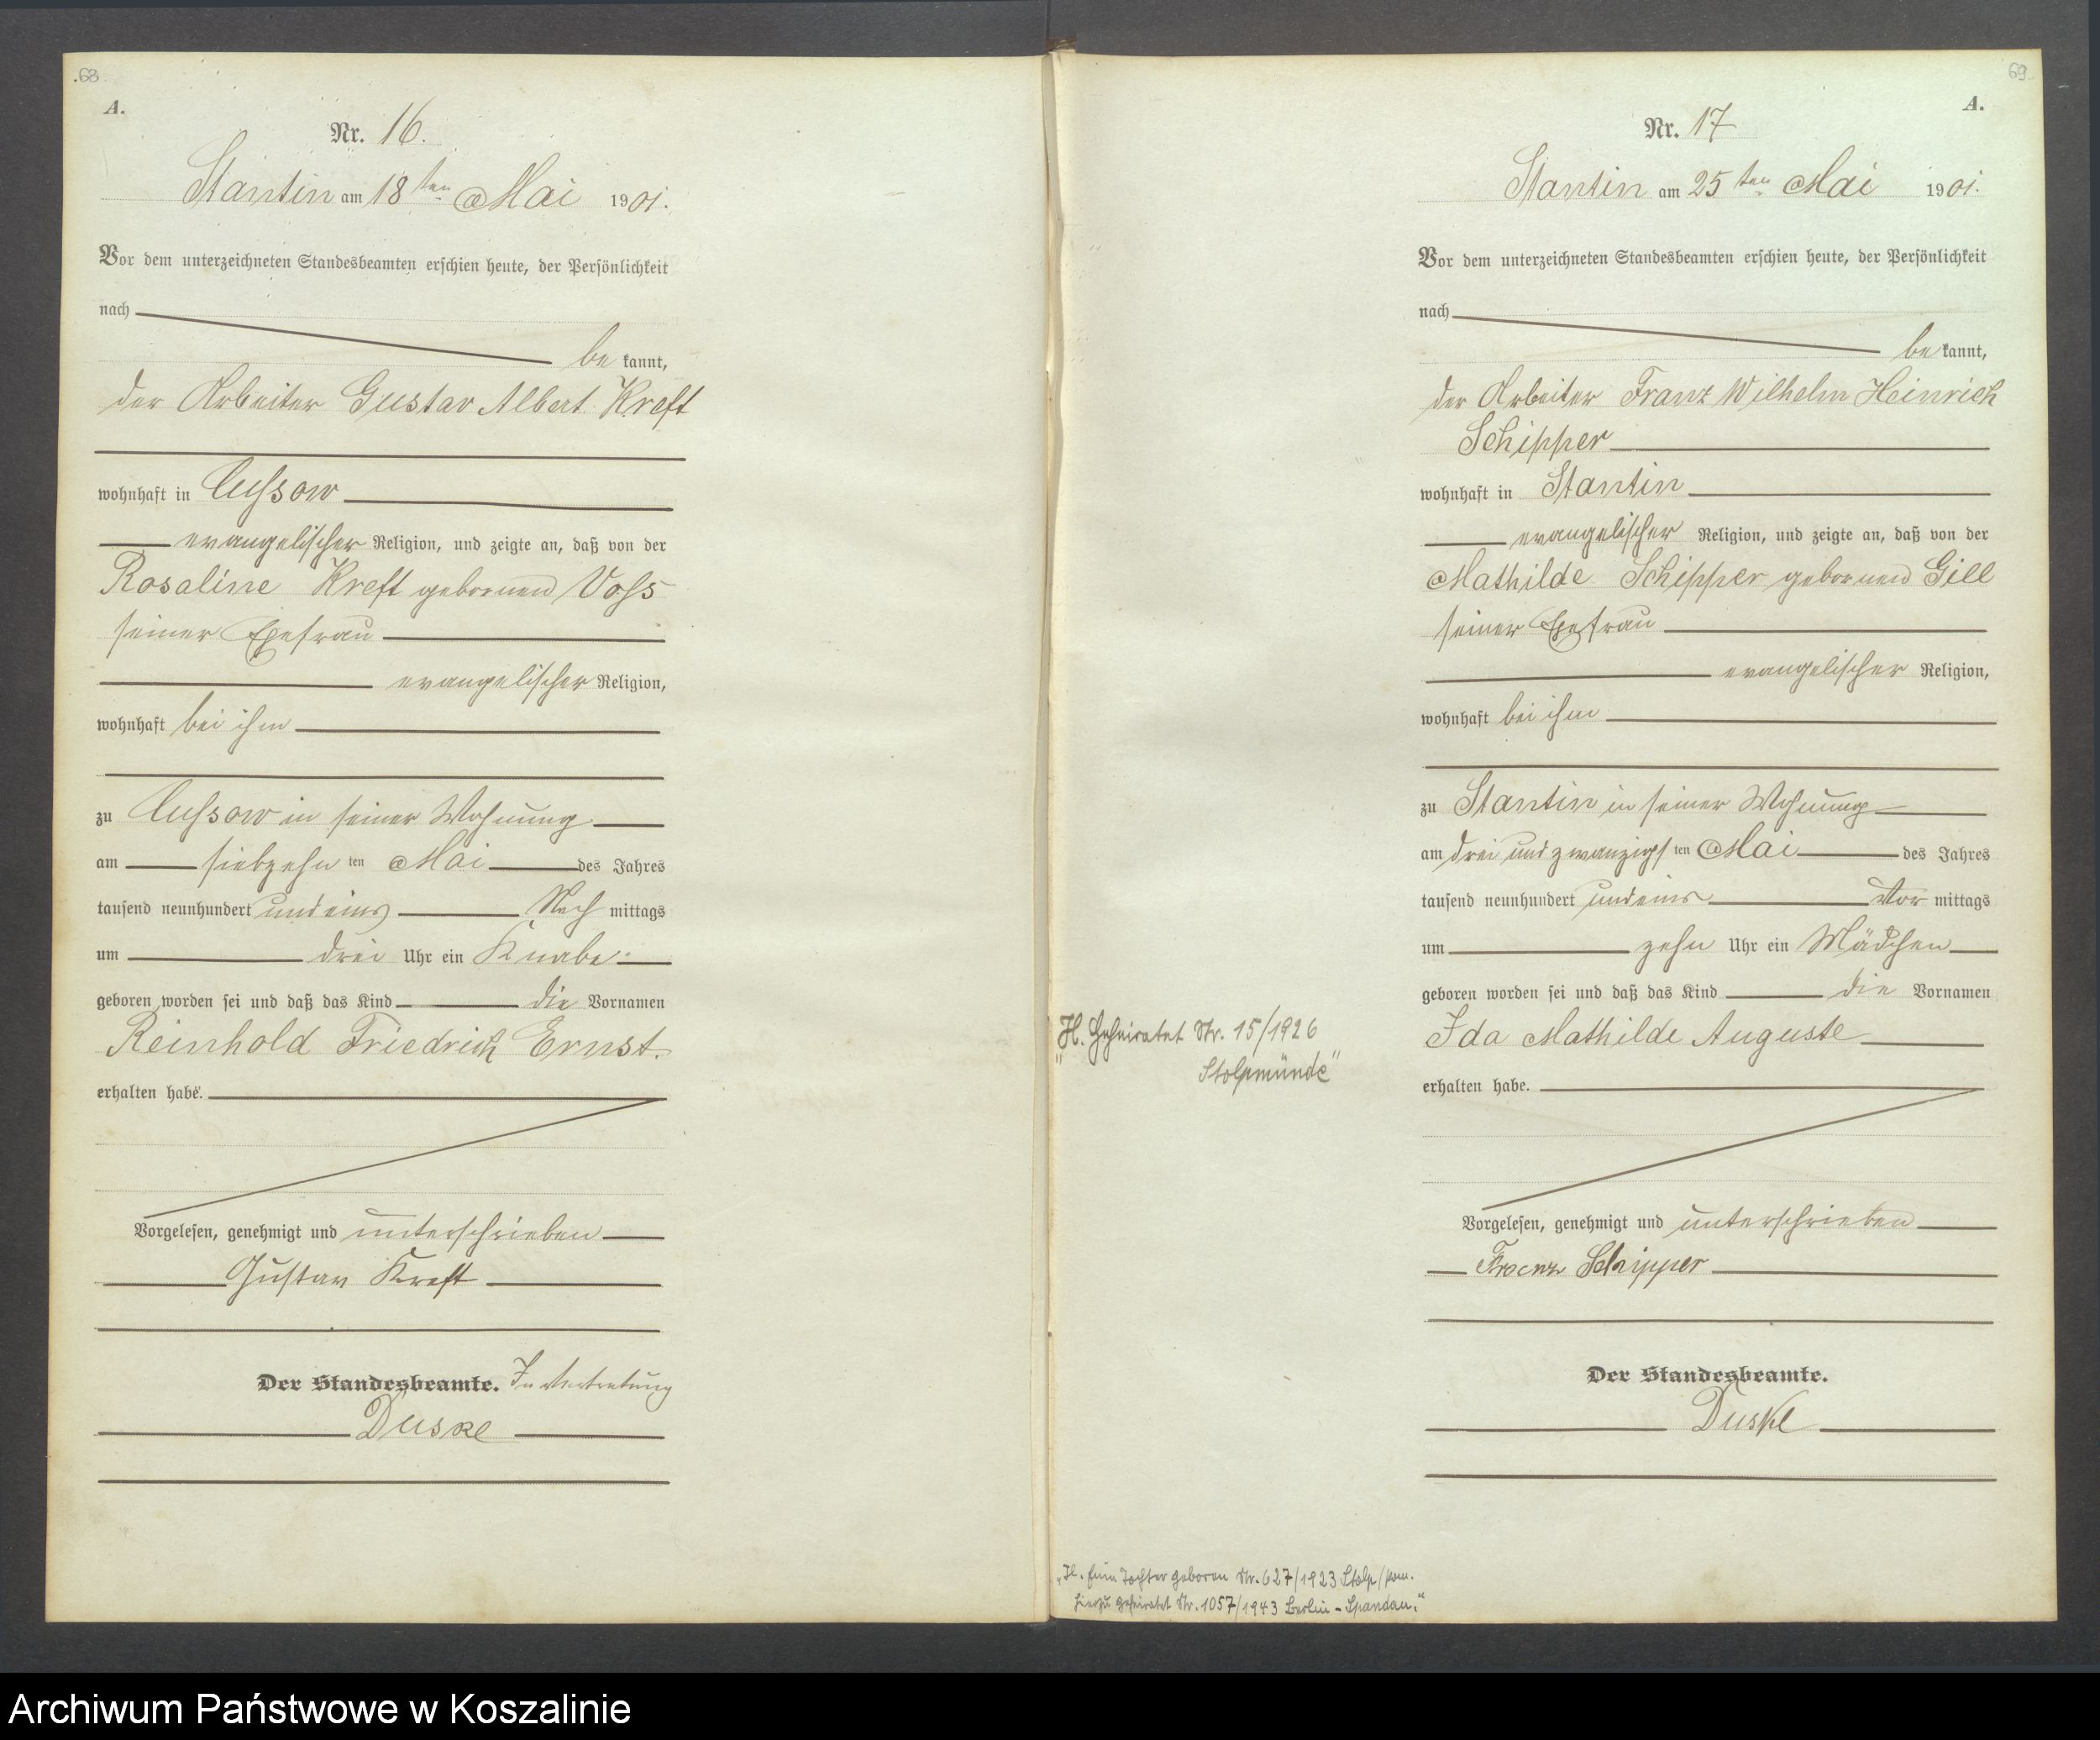 68
A.
Nr. 16.
Stantin am 18ten Mai 1901.
Vor dem unterzeichneten Standesbeamten erschien heute, der Persönlichkeit
nach
be kannt,
der Arbeiter Gustav Albert Kreft
wohnhaft in Cussow
evangelischer Religion, und zeigte an, daß von der
Rosaline Kreft gebornen Voss
seiner Ehefrau
evangelischer Religion,
wohnhaft bei ihm
zu Cussow in seiner Wohnung
am siebzehn ten Mai des Jahres
tausend neunhundert und eins Nach mittags
um drei Uhr ein Knabe
geboren worden sei und daß das Kind die Vornamen
Reinhold Friedrich Ernst.
erhalten habe.
Vorgelesen, genehmigt und unterschrieben
Gustav Kreft
Der Standesbeamte. In Vertretung
Duske
69
A.
Nr. 17
Stantin am 25ten Mai 1901.
Vor dem unterzeichneten Standesbeamten erschien heute, der Persönlichkeit
nach
be kannt,
der Arbeiter Franz Wilhelm Heinrich
Schipper
wohnhaft in Stantin
evangelischer Religion, und zeigte an, daß von der
Mathilde Schipper gebornen Gill
seiner Ehefrau
evangelischer Religion,
wohnhaft bei ihm
zu Stantin in seiner Wohnung
am drei und zwanzigs ten Mai des Jahres
tausend neunhundert und eins Vor mittags
um zehn Uhr ein Mädchen
geboren worden sei und daß das Kind die Vornamen
Ida Mathilde Auguste
erhalten habe.
Vorgelesen, genehmigt und unterschrieben
Franz Schipper
Der Standesbeamte.
Duske
Geheiratet Nr. 15/1926
Stolpmünde"
Tochter geboren Nr. 627/1923 Stolp/Pom.
hierzu geheiratet Nr. 1057/1943 Berlin-Spandau."
Archiwum Państwowe w Koszalinie